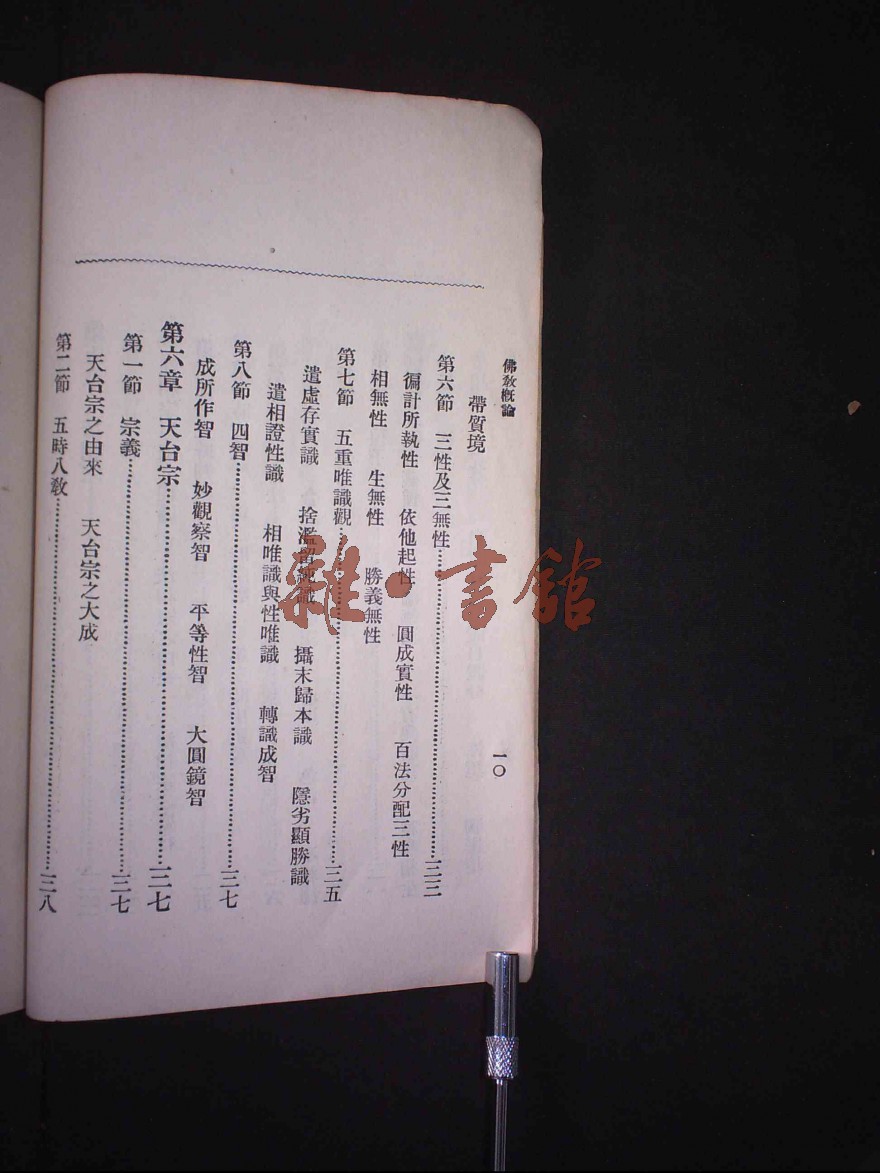 佛教概論
一〇
帶質境
第六節 三性及三無性…………三三
徧計所執性 依他起性 圓成實性 百法分配三性
相無性 生無性 勝義無性
第七節 五重唯識觀…………三五
遣虛存實識 捨濫留純識 攝末歸本識 隱劣顯勝識
遣相證性識 相唯識與性唯識 轉識成智
第八節 四智…………三七
成所作智 妙觀察智 平等性智 大圓鏡智
第六章 天台宗…………三七
第一節 宗義…………三七
天台宗之由來 天台宗之大成
第二節 五時八教…………三八
雜·書館